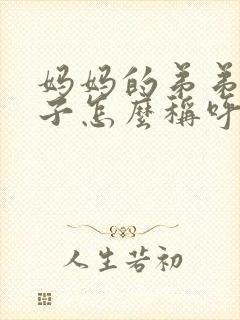 妈妈的弟弟
子怎麽稱呼
人生若初